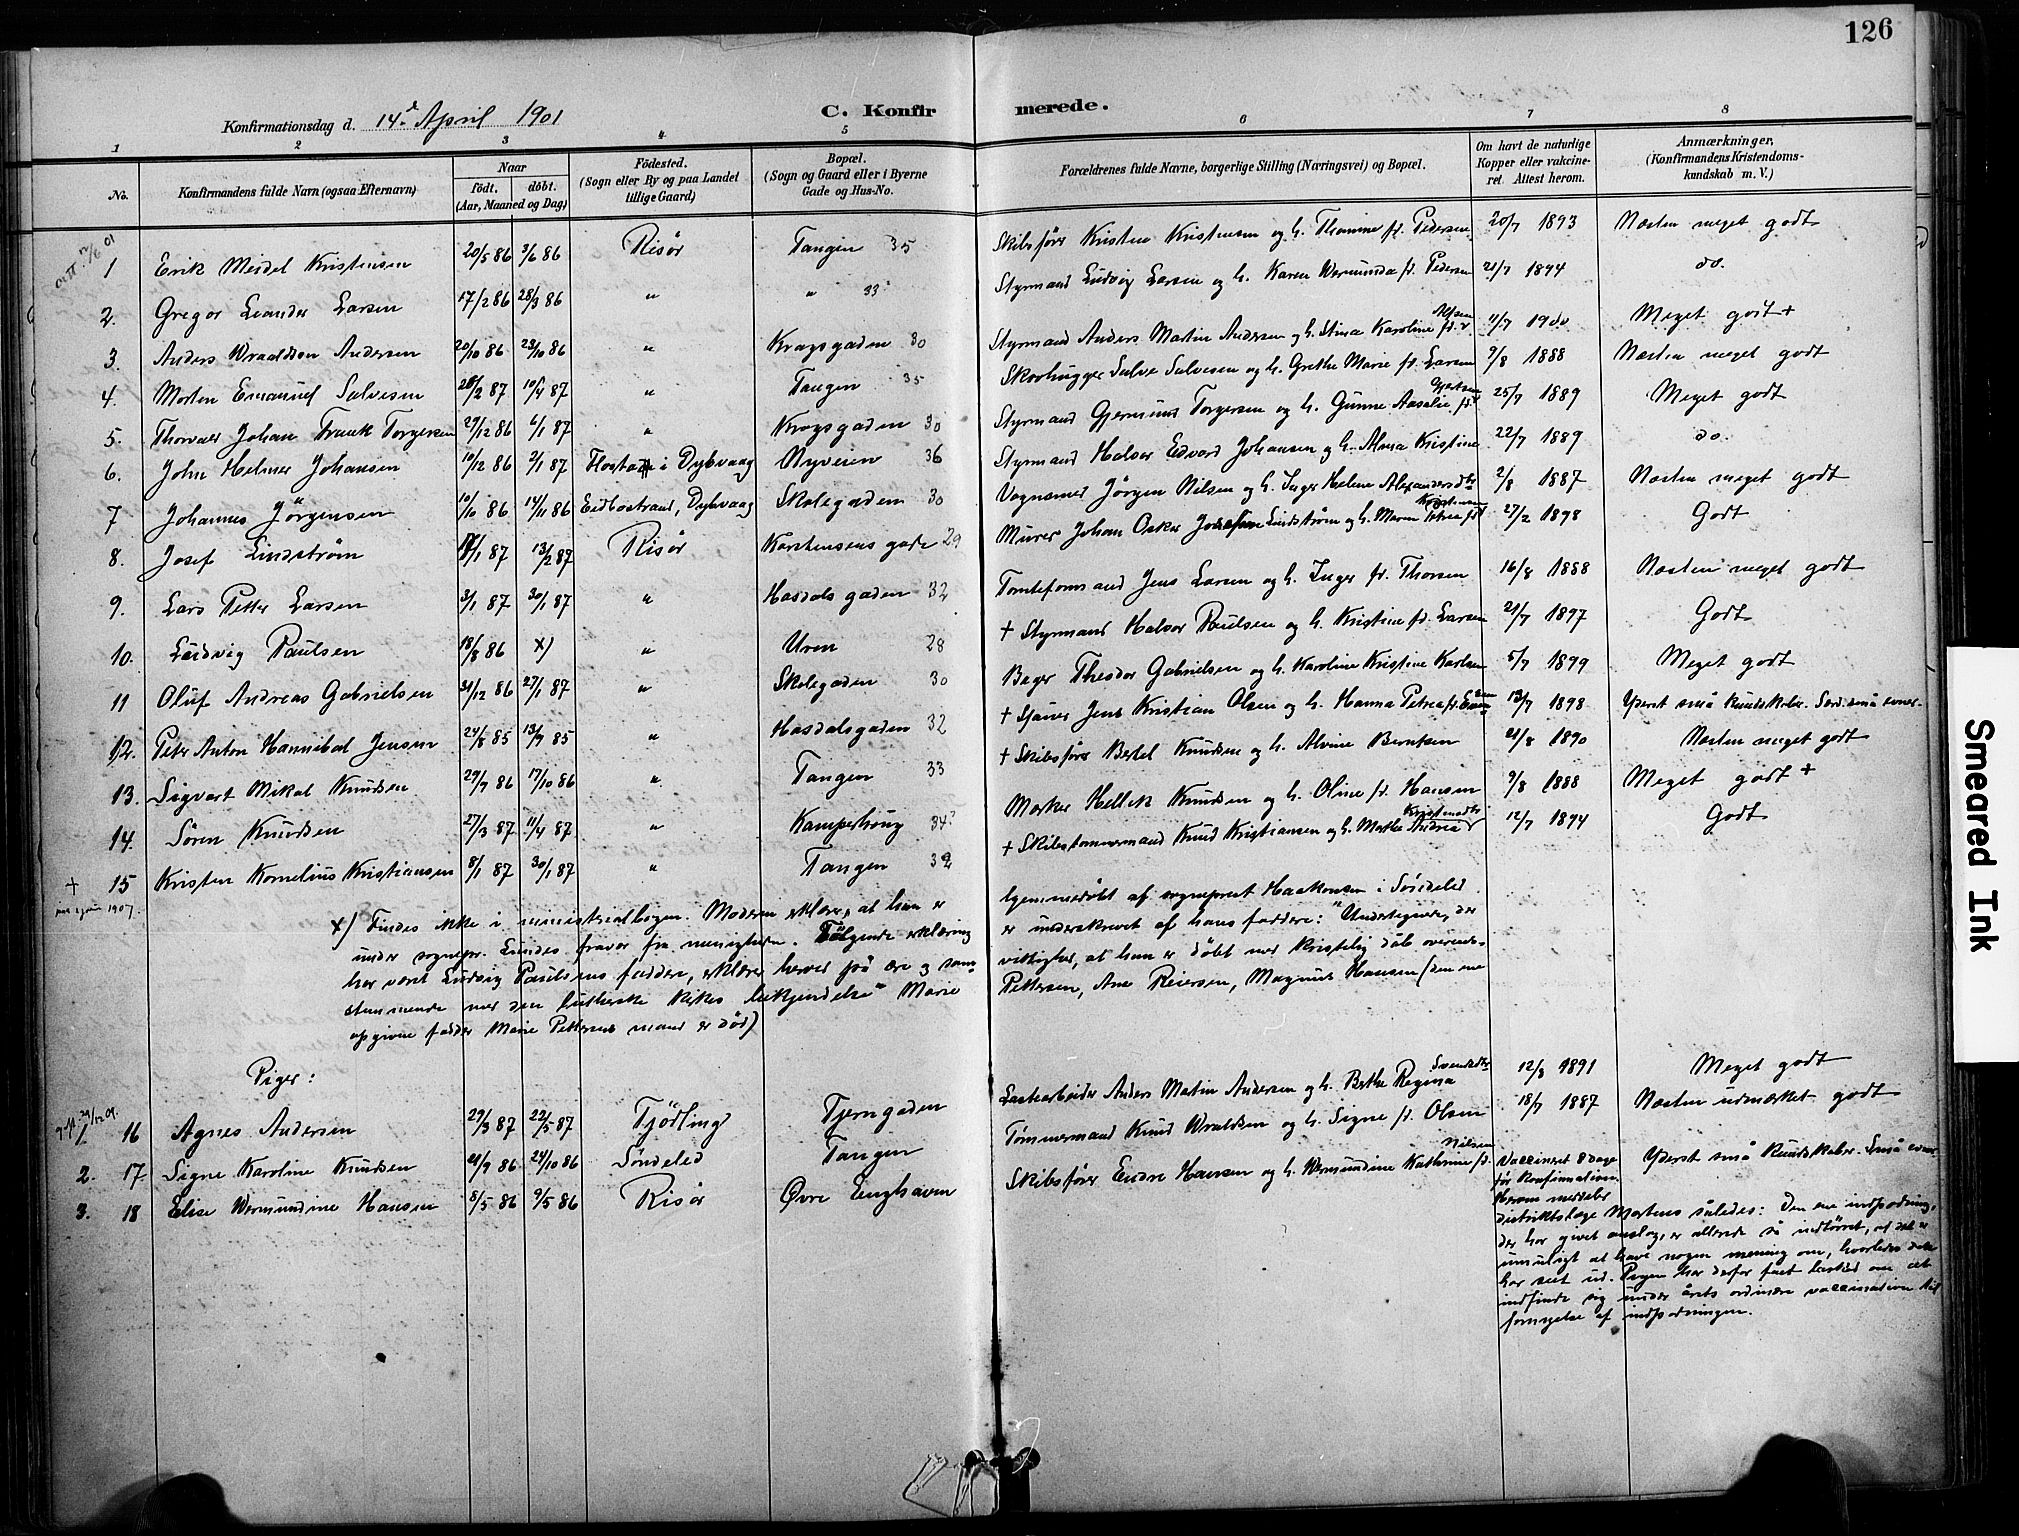 126
Konfirmationsdag d. 14d April 1901
C. Konfirmerede.
1 2 3 4 5 6 7 8
No.
Konfirmandens fulde Navn (ogsaa Efternavn)
Naar
født. døbt.
(Aar, Maaned og Dag)
Födested.
(Sogn eller By og paa Landet
tillige Gaard)
Bopæl.
(Sogn og Gaard eller i Byerne
Gade og Hus-No.
Forældrenes fulde Navne, borgerlige Stilling (Næringsvei) og Bopæl.
Om havt de naturlige
Kopper eller vakcine-
ret. Attest herom.
Anmærkninger,
(Konfirmandens Kristendoms-
kundskab m. V.)
1 Erik Meidel Kristensen 20/5 86 3/6 86 Risør Tangen 35 Skibsfører Kristen Kristensen og h. Thomine f. Pedersen 20/7 1893 Næsten meget godt
2. Gregor Leander Larsen 17/2 86 28/3 86 " " 33 Styrmand Ludvig Larsen og h. Karen Wermunda f. Pedersen 21/7 1894 do.
3. Anders Wraaldsen Andersen 20/10 86 23/10 86 " Kragsgaden 30 Styrmand Anders Martin Andersen og h. Stina Karoline f. Alfsen 11/7 1900 Meget godt +
4. Morten Emanuel Salvesen 28/2 87 10/4 87 " Tangen 35 Skovhugger Salve Salvesen og h. Grethe Marie f. Larsen 9/8 1888 Næsten meget godt
5. Thorvald Johan Frank Torgersen 27/12 86 6/1 87 " Kragsgaden 30 Styrmand Gjermund Torgersen og h. Gunne Aasalie f. 25/7 1889 Meget godt
6. John Helmer Johansen 10/12 86 2/1 87 Flosta i Dybvaag Nyveien 36 Styrmand Halvor Edvard Johansen og h. Alma Kristine 22/7 1889 do.
7 Johannes Jörgensen 10/10 86 14/11 86 Eidbostrand, Dybvaag Skolegaden 30 Vognmand Jörgen Nilsen og h. Inger Helene Alexandersdtr 2/8 1887 Næsten meget godt
8. Josef Lindstrøm 1/1 87 13/2 87 Risør Karstensens gade 29 Murer Johan Oskar Josefson Lindstrøm og h. Maren Petrea f. Kristensen 27/2 1898 Godt
9. Lars Petter Larsen 3/1 87 30/1 87 " Hasdalsgaden 32 Tomteformand Jens Larsen og h. Inger f. Thorsen 16/8 1888 Næsten meget godt
10. Ludvig Paulsen 18/8 86 x) " Uren 28 + Styrmand Halvor Paulsen og h. Kristine f. Larsen 21/7 1897 Godt
11 Oluf Andreas Gabrielsen 31/12 86 27/1 87 " Skolegaden 30 Bager Theodor Gabrielsen og h. Karoline Kristine Karlsen 5/7 1899 Meget godt
12. Peter Anton Hannibal Jensen 24/8 85 13/9 85 " Hasdalsgaden 32 + Sjauer Jens Kristian Olsen og h. Hanna Petrea f. 13/7 1898 Yderst små kundskaber. Særd. små evner.
13. Sigvart Mikal Knudsen 29/7 86 17/10 86 " Tangen 33 + Skibsfører Bertel Knudsen og h. Alvine Berntsen 21/8 1890 Næsten meget godt
14. Sören Knudsen 27/3 87 11/4 87 " Kamperhaug 34 Mærker Hellik Knudsen og h. Oline f. Hansen 9/8 1888 Meget godt +
+ 15 Kristen Kornelius Kristiansen 8/1 87 30/1 87 " Tangen 32 + Skibstømmermand Knud Kristiansen og h. Marthe Andrea Kristensdtr 12/7 1894 Godt
1907.
x) Findes ikke i ministerialbogen. Moderen erklærer, at han er hjemmedøbt af sogneprest Haakonsen i Søndeled
under sognepr. Lundes fravær fra menigheden. Følgende erklæring er underskrevet af hans faddere: "Undertegnede, der
har været Ludvig Paulsens faddere, erklærer herved på ære og sam- vittighed, at han er døbt med kristelig dåb overens-
stemmende med den lutherske kirkes bekjendelse" Marie Pettersen, Ane Reiersen, Magnus Hansen (den ene
opgivne fadder Marie Pettersens mand er død)
Piger:
1. 16 Agnes Andersen 29/3 87 22/5 87 Tjödling Tjerngaden Lastearbeider Anders Martin Andersen og h. Berthe Regina Svendsdtr 12/8 1891 Meget godt
2. 17 Signe Karoline Knudsen 21/9 86 24/10 86 Söndeled Tangen Tømmermand Knud Wraldsen og h. Signe f. Olsen 18/7 1887 Næsten udmærket godt
3. 18 Elise Wermundine Hansen 8/5 86 9/5 86 Risør Øvre Enghaven Skibsfører Endre Hansen og h. Wermundine Kathrine f. Nilsen Vaccineret 8 dage Yderst små kundskaber. Små evner
før konfirmationen.
Herom meddeler
distriktslæge Mortens således: Den ene indpodning,
der har givet anslag, er allerede så indtørret, at det er
umuligt at have nogen mening om, hvorledes den
har seet ud. Pigen har derfor fået besked om at
indfinde sig under årets ordinære vaccination til
fornyelse af indpodningen.
Smeared Ink